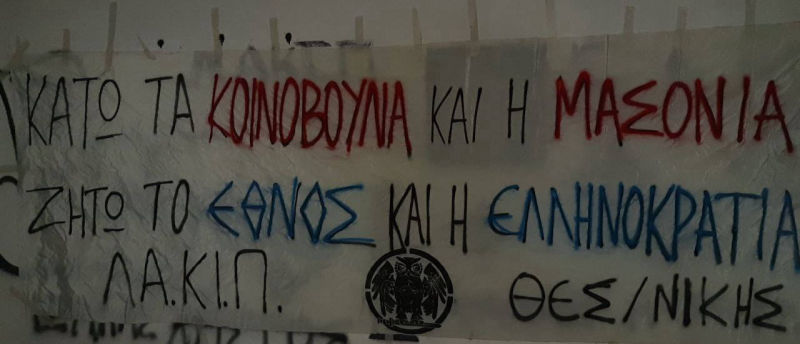 ΚΑΤΩ ΤΑ ΚΟΙΝΟΒΟΥΛΙΑ ΚΑΙ Η ΜΑΣΟΝΙΑ
ΖΗΤΩ ΤΟ ΕΘΝΟΣ ΚΑΙ Η ΕΛΛΗΝΟΚΡΑΤΙΑ
ΛΑ.ΚΙ.Π. ΘΕΣ/ΝΙΚΗΣ